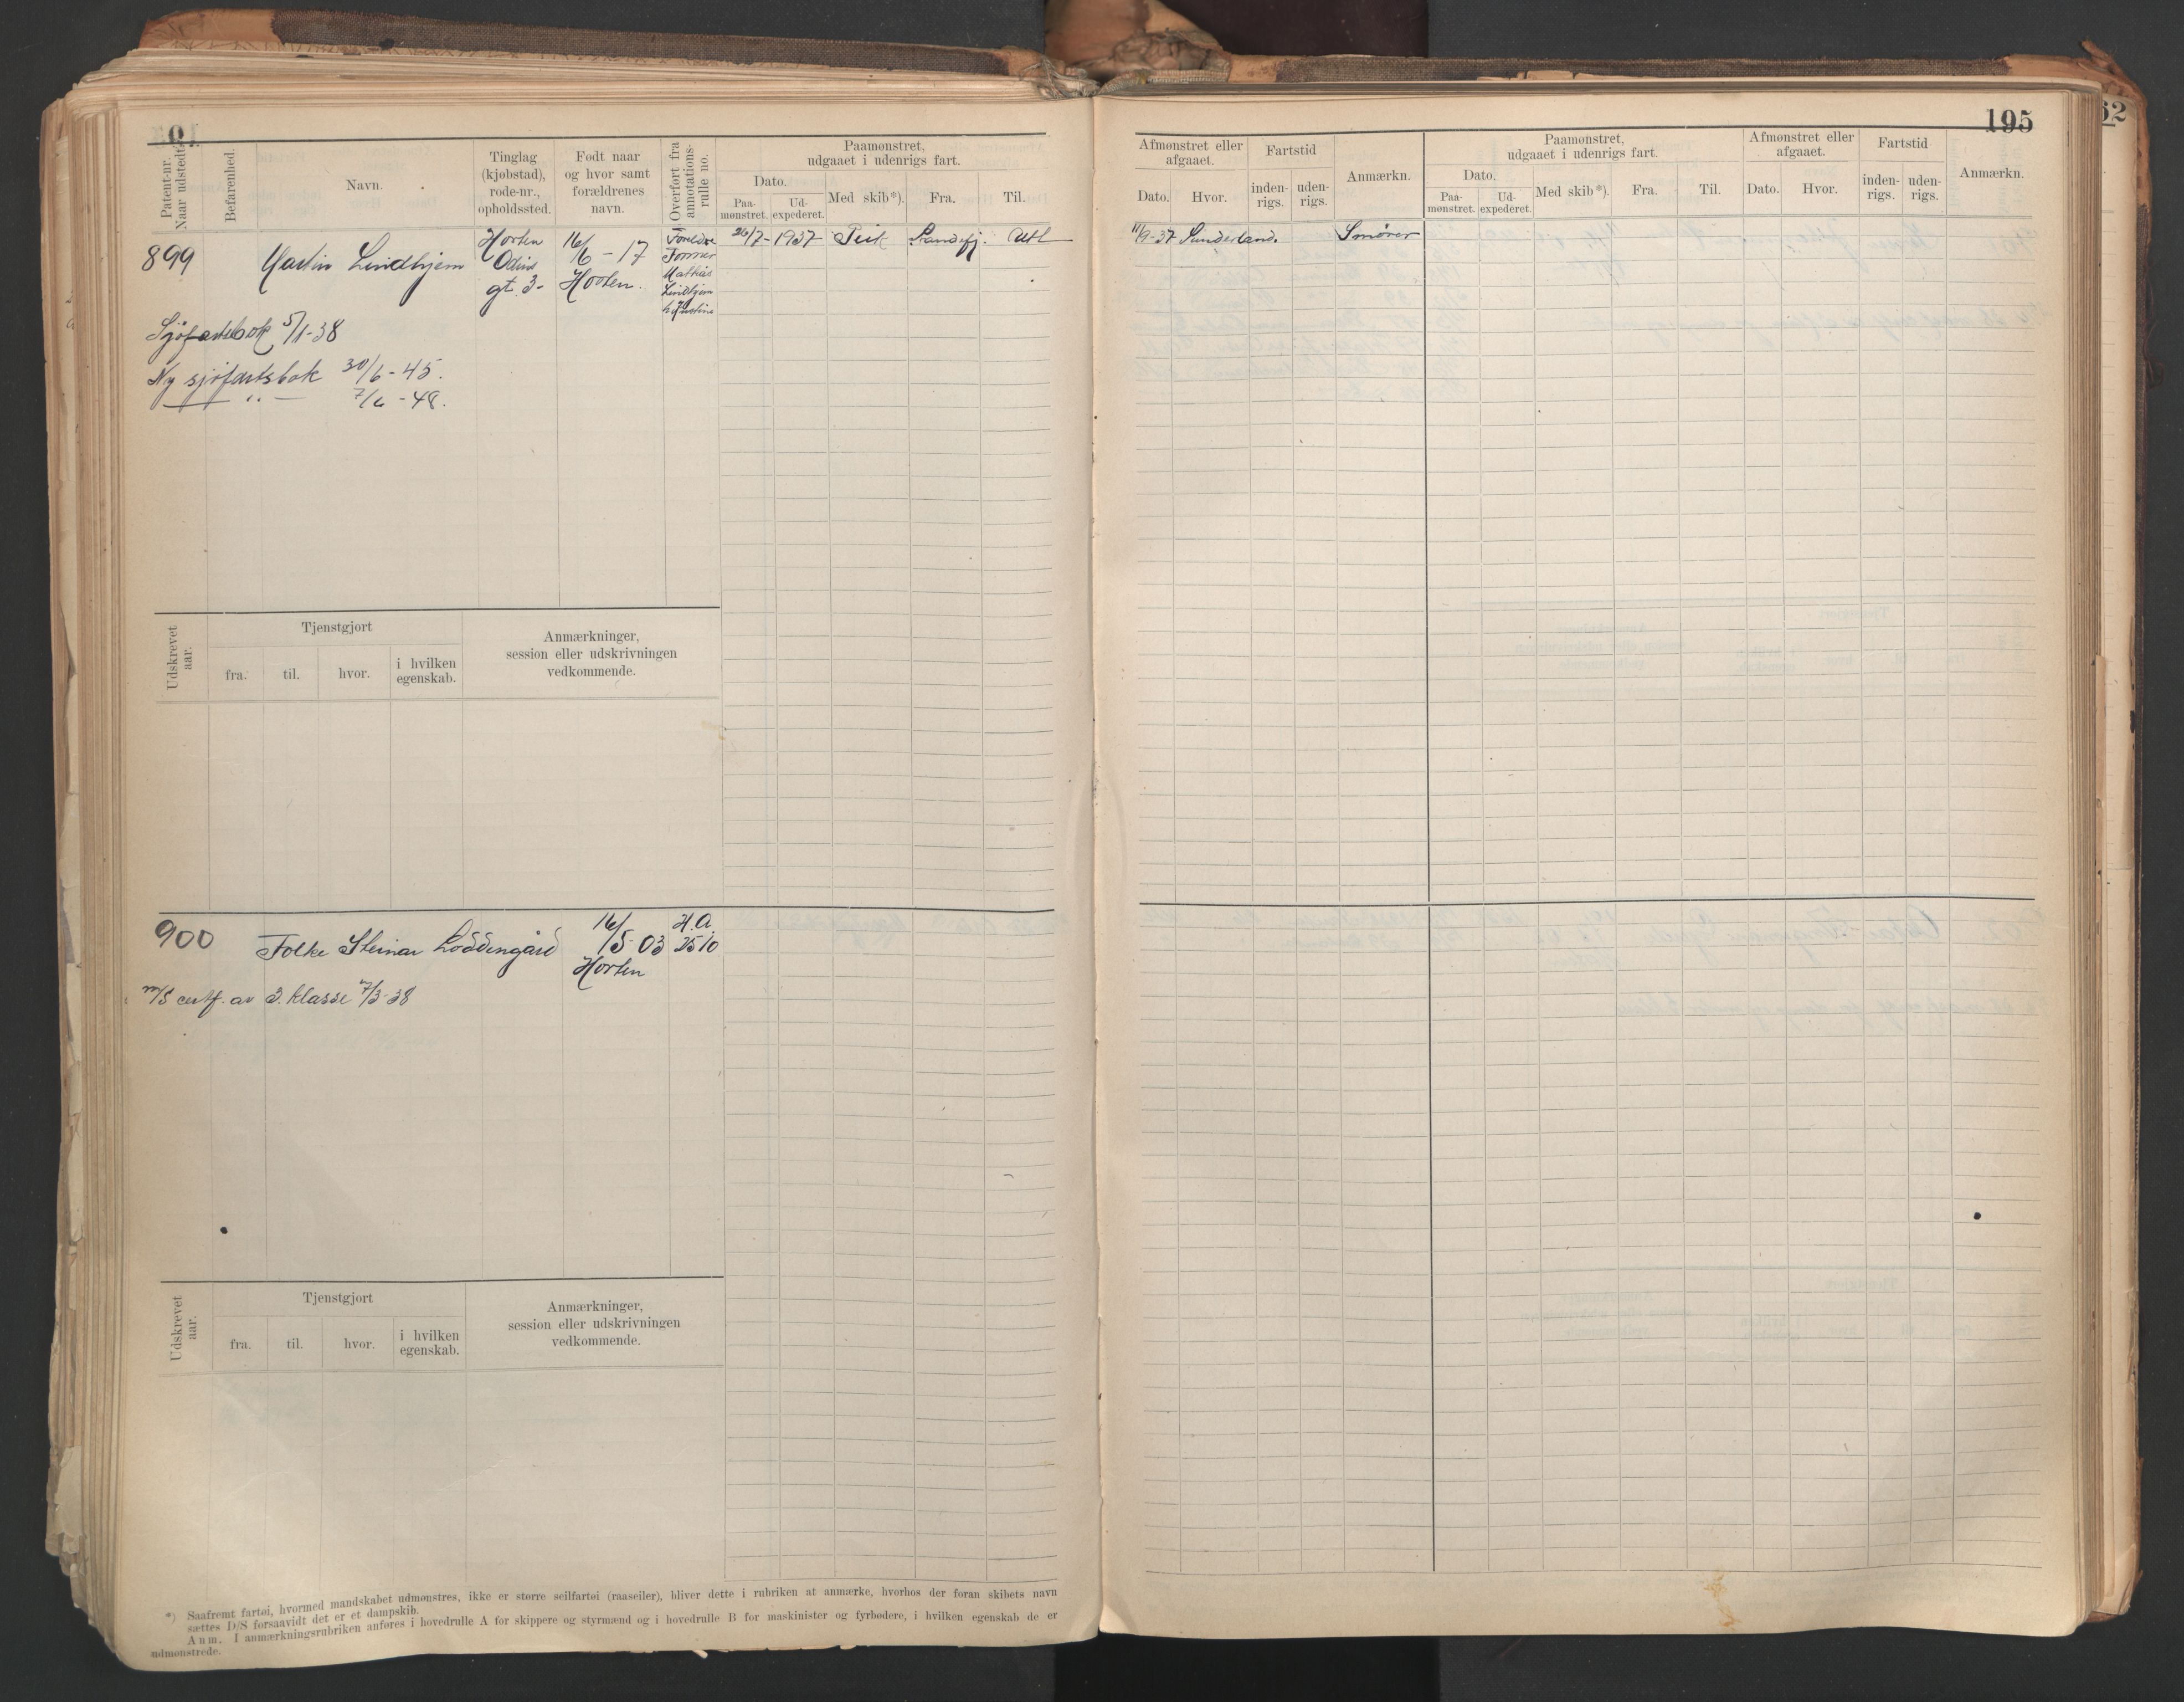 195
62
Patent-nr. Naar udstedt.
Befarenhed.
Navn.
Tinglag (kjøbstad), rode-nr., opholdssted.
Født naar og hvor samt forældrenes navn.
Overført fra annotations-rulle no.
Paamønstret, udgaaet i udenrigs fart.
Dato.
Paa-mønstret.
Ud-expederet.
Med skib*).
Fra.
Til.
Afmønstret eller afgaaet.
Dato.
Hvor.
Fartstid
inden-rigs.
uden-rigs.
Anmærkn.
Paamønstret, udgaaet i udenrigs fart.
Dato.
Paa-mønstret.
Ud-expederet.
Med skib*).
Fra.
Til.
Afmønstret eller afgaaet.
Dato.
Hvor.
Fartstid
inden-rigs.
uden-rigs.
Anmærkn.
899
Martin Lindhjem
Horten
Odins
gt. 3-
16/6 - 17
Horten.
Foreldre
Former
Mathias
Lindhjem
26/7-1937
Sandefj.
Utl
11/9-37 Sunderland.
Smører
Sjøfartsbok 5/1-38
Ny sjøfartsbok 30/6-45.
— " — 7/6-48.
Udskrevet aar.
Tjenstgjort
fra.
til.
hvor.
i hvilken egenskab.
Anmærkninger,
session eller udskrivningen
vedkommende.
900
Folke Steinar Loddengård
16/5 03
Horten
H.A.
2510
m/s certf. av 3. klasse 7/3-38
Udskrevet aar.
Tjenstgjort
fra.
til.
hvor.
i hvilken egenskab.
Anmærkninger,
session eller udskrivningen
vedkommende.
*) Saafremt fartøi, hvormed mandskabet udmønstres, ikke er større seilfartøi (raaseiler), bliver dette i rubriken at anmærke, hvorhos der foran skibets navn
sættes D/S forsaavidt det er et dampskib.
Anm. I anmærkningsrubriken anføres i hovedrulle A for skippere og styrmænd og i hovedrulle B for maskinister og fyrbødere, i hvilken egenskab de er
udmønstrede.